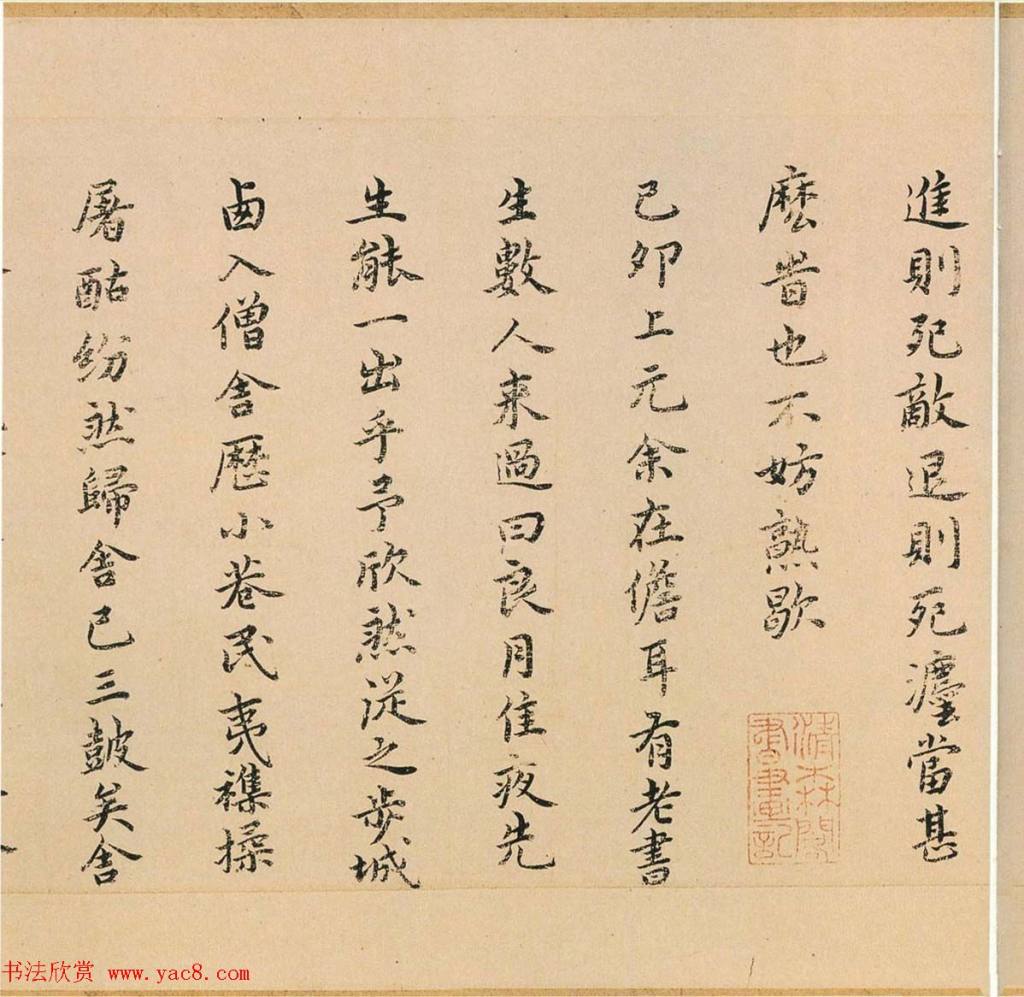 進則死敵退則死灋當甚
麼旹也不妨熟歇
清森閣
書畫記
己卯上元余在儋耳有老書
生數人來過曰良月佳夜先
生能一出乎予欣然從之步城
卥入僧舍歷小巷民夷襍操
屠酤紛然歸舍已三鼓矣舍
书法欣赏 www.yac8.com